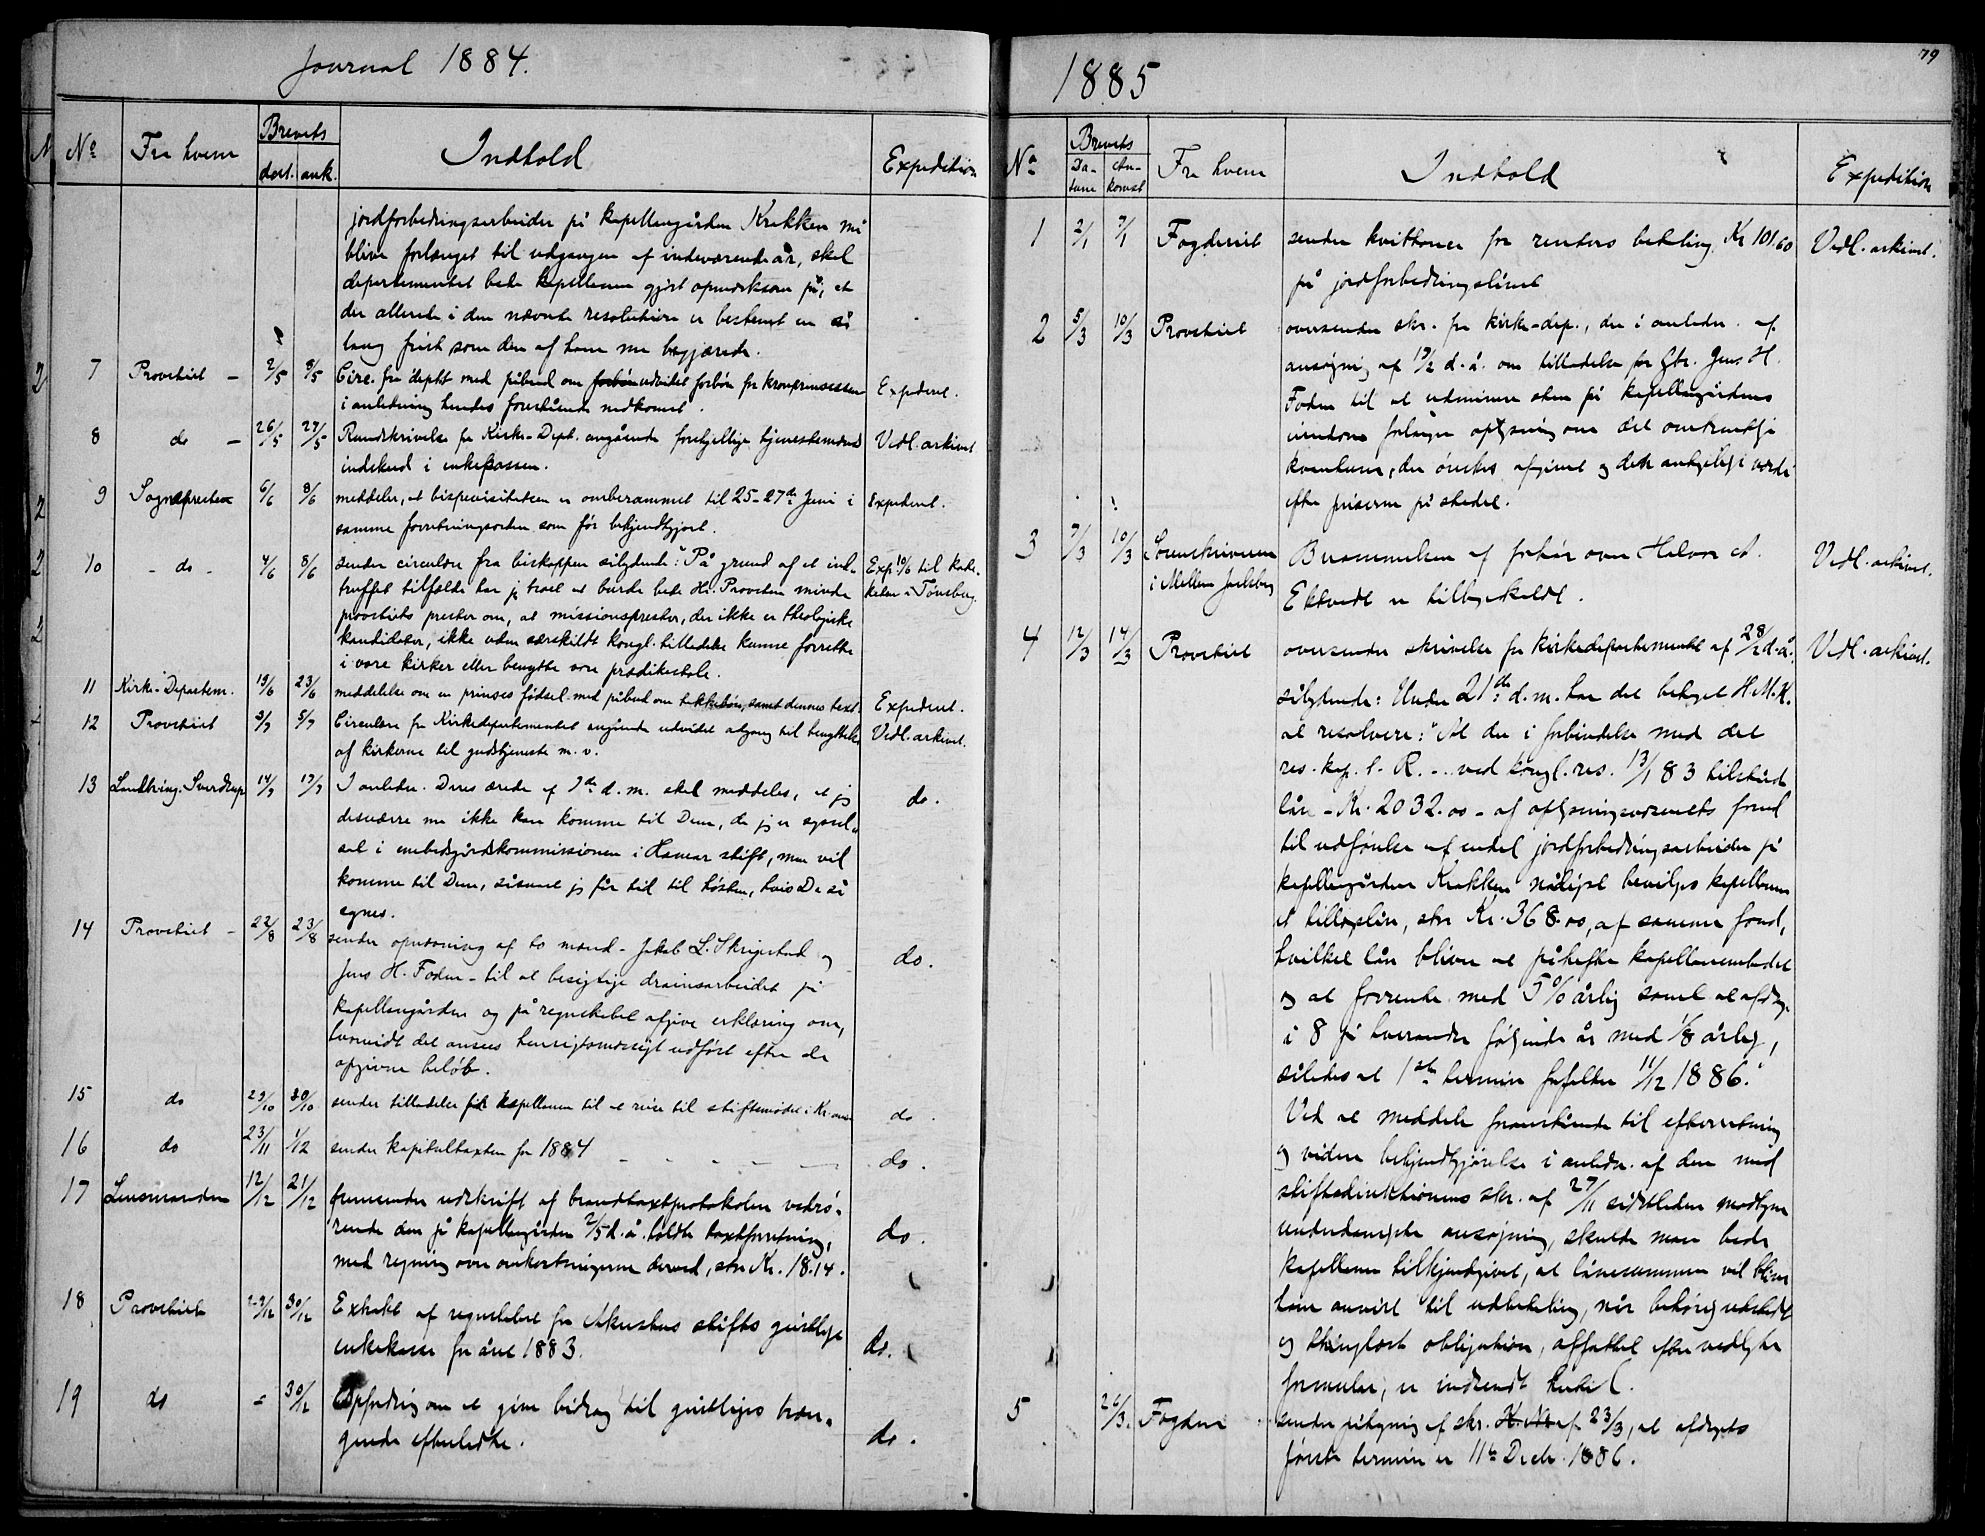 Journal 1884.
No Fra hvem Brevets dat. ank. Indhold Expedition
jordforbedringsarbeider på kapellangården Krakken må
blive forlænget til udgangen af indeværende år, skal
departementet bede kapellanen gjort opmærksom på, at
der allerede i den nævnte resolution er bestemt en så
lang frist som den af ham nu begjærede.
7 Provstiet – 2/5 8/5 Circ. fra deptet med påbud om forbøn udvidet forbøn for kronprinsessen Expederet.
i anledning hendes forestående nedkomst.
8 do – 26/5 27/5 Rundskrivelse fra Kirke-Dept. angående forskjellige tjenestemænds Vedl. arkivet
indskud i enkekassen.
9 Sognepresten 6/6 8/6 meddeler, at bispevisitatsen er omberammet til 25-27de Juni i Expederet.
samme forretningsorden som før bekjendtgjort.
10 - do - 4/6 8/6 sender circulære fra biskoppen sålydende: "På grund af et ind- Exp. 10/6 til kate-
truffet tilfælde har jeg troet at burde bede Hr. Provsten minde keten i Tönsberg.
provstiets prester om, at missionsprester, der ikke er theologiske
kandidater, ikke uden særskildt kongl. tilladelse kunne forrette
i vore kirker eller benytte vore prædikestole.
11 Kirke-Departem. 19/6 23/6 meddelelse om en prinses fødsel med påbud om takkebøn, samt dennes text. Expederet.
12 Provstiet 3/7 5/7 Circulære fra Kirkedepartementet angående udvidet adgang til benyttelse Vedl. arkivet.
af kirkerne til gudstjeneste m. v.
13 Landbring. Sverdrup 14/7 17/7 I anledn. Deres ærede af 7de d. m. skal meddeles, at jeg do.
desværre nu ikke kan komme til Dem, da jeg er syssel-
sat i embedsgårdskommissionen i Hamar stift, men vil
komme til Dem, såsnart jeg får tid til høsten, hvis De så
synes.
14 Provstiet – 22/8 23/8 sender opnævning af to mænd – Jakob L. Skrigestad og do.
Jens H. Foden – til at besigtige drainsarbeidet på
kapellangården og på regnskabet afgive erklæring om,
hvorvidt det ansees hensigtsmæssigt udført efter de
opgivne beløb.
15 do 29/10 30/10 sender tilladelse for kapellanen til at reise til stiftsmødet i Kr.ania do
16 do 23/11 1/12 sender kapitaltaxten for 1884 do.
17 Lensmanden 12/12 21/12 fremsender udskrift af brandtaxtprotokolen vedrö- do.
rende den på kapellangården 2/5 d. å. holdte taxtforretning,
med regning over omkostningerne derved, stor Kr. 18.14.
18 Provstiet 29/12 30/12 Extrakt af regnskabet for Akershus stifts geistlige do.
enkekasse for året 1883.
19 do = 30/12 Opfordring om at give bidrag til geistliges træn- do.
gende efterladte.
1885
79
No Brevets Datum Ankomst Fra hvem Indhold Expedition
1 2/1 7/1 Fogderiet sender kvittance for renters betaling Kr 101.60 Vedl. arkivet.
på jordforbedringslånet
2 5/3 10/3 Provstiet oversender skr. fra kirke-dep., der i anledn. af
ansøgning af 19/2 d. å. om tilladelse for Gbr. Jens H.
Foden til at udminere sten på kapellangårdens
eiendom forlanger oplysning om det omtrentlige
kvantum, der ønskes afgivet og dets antagelige værdi
efter priserne på stedet.
3 7/3 10/3 Sorenskriveren Berammelsen af forhør over Halvor A. Vedl. arkivet.
i Mellem Jarlsberg Ektvedt er tilbagekaldt.
4 12/3 14/3 Provstiet oversender skrivelse fra kirkedepartementet af 28/2 d. å. Vedl. arkivet.
sålydende: Under 21de d. m. har det behaget H. M. K.
at resolvere: "At der i forbindelse med det
res. kap. t. R. ... ved kongl. res. 13/1 83 tilståede
lån – Kr. 2032.00 – af oplysningsvæsenets fond
til udførelse af endel jordforbedringsarbeider på
kapellangården Krakken nådigst bevilges kapellanen
et tillægslån, stor Kr. 368.00, af samme fond,
hvilket lån bliver at påhefte kapellanembedet
og at forrente med 5 % årlig samt at afdrages
i 8 på hverandre følgende år med 1/8 årlig,
således at 1ste termin forfalder 11/12 1886."
Ved at meddele foranstående til efterretning
og videre bekjendtgjørelse i anledn. af den med
stiftsdirektionens skr. af 27/11 sidstleden modtagne
underdanigste ansøgning, skulde man bede
kapellanen tilkjendegivet, at lånesummen vil blive
ham anvist til udbetaling, når behørig udstedt
og thinglæst obligation, affattet efter vedlagte
formular, er indsendt hertil.
5 26/3. Fogden sender påtegning af skr. af 23/3, at afdragets
første termin er 11te Decbr. 1886.